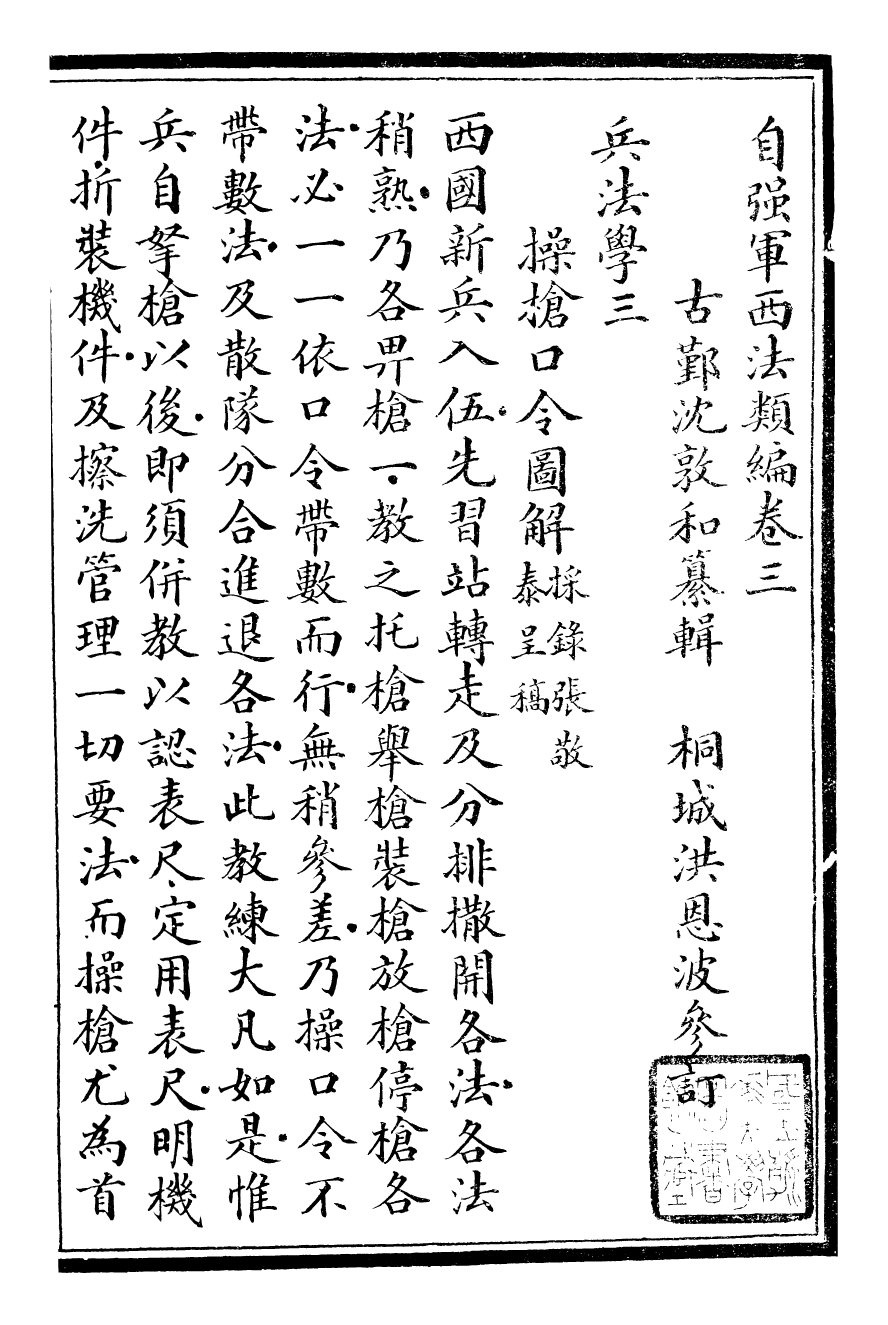 自强軍西法類編卷三
古鄞沈敦和纂輯　桐城洪恩波參訂
兵法學三
操槍口令圖解採錄張敬泰呈稿
西國新兵入伍。先習站轉走及分排撒開各法。各法
稍熟。乃各畀槍一。教之托槍舉槍裝槍放槍停槍各
法。必一一依口令帶數而行。無稍參差。乃操口令不
帶數法。及散隊分合進退各法。此教練大凡如是。惟
兵自拏槍以後。即須併教以認表尺、定用表尺。明機
件。折裝機件。及擦洗管理一切要法。而操槍尤為首